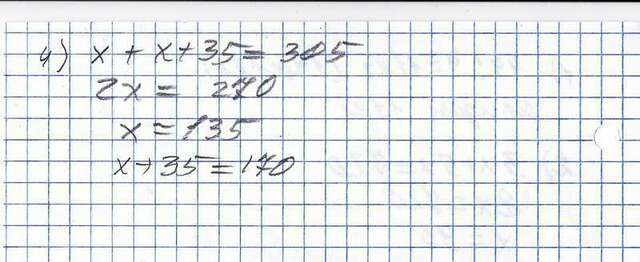 4) x + x + 35 = 305
2x = 270
x = 135
x + 35 = 170